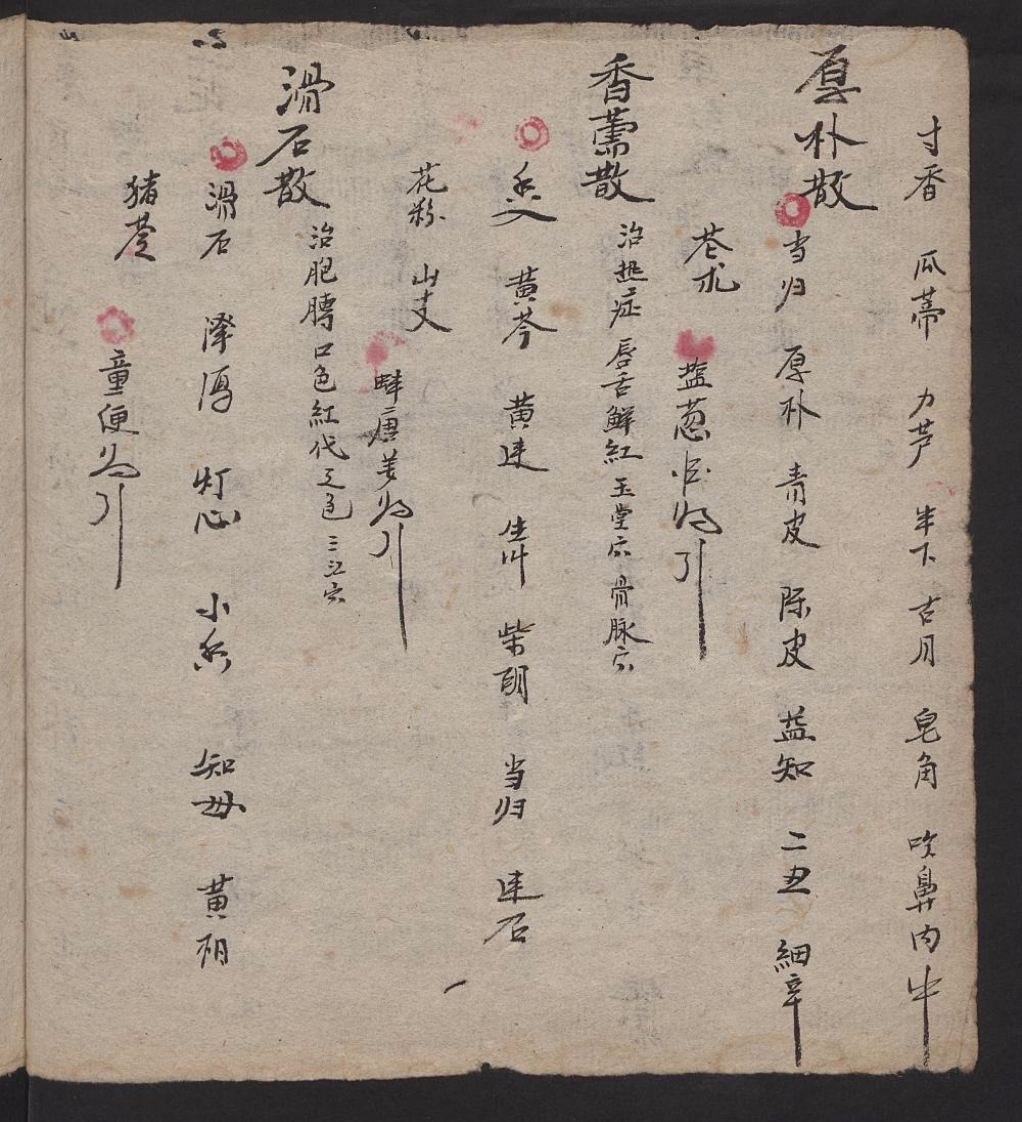 寸香 瓜蒂 力芦 半下 古月 皂角 吹鼻内中
厚朴散
当归 厚朴 青皮 陈皮 益知 二丑 細辛
苍朮 塩葱 引
香薷散 治热症唇舌鮮紅 玉堂穴 骨脉穴
黄芩 黄连 柴胡 当归 连石
花粉 山支 引
滑石散 治胞膊口色紅代 三江穴
滑石 泽泻 灯心 小 知母 黄柏
猪苓 童便 引